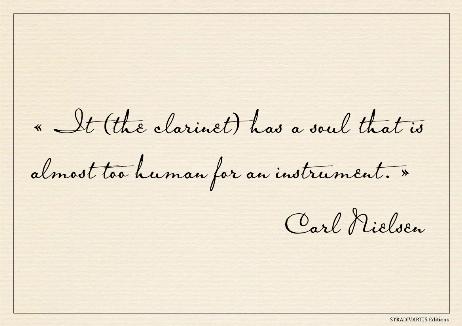 « It (the clarinet) has a soul that is
almost too human for an instrument. »
Carl Nielsen
STRADIVARIUS Editions